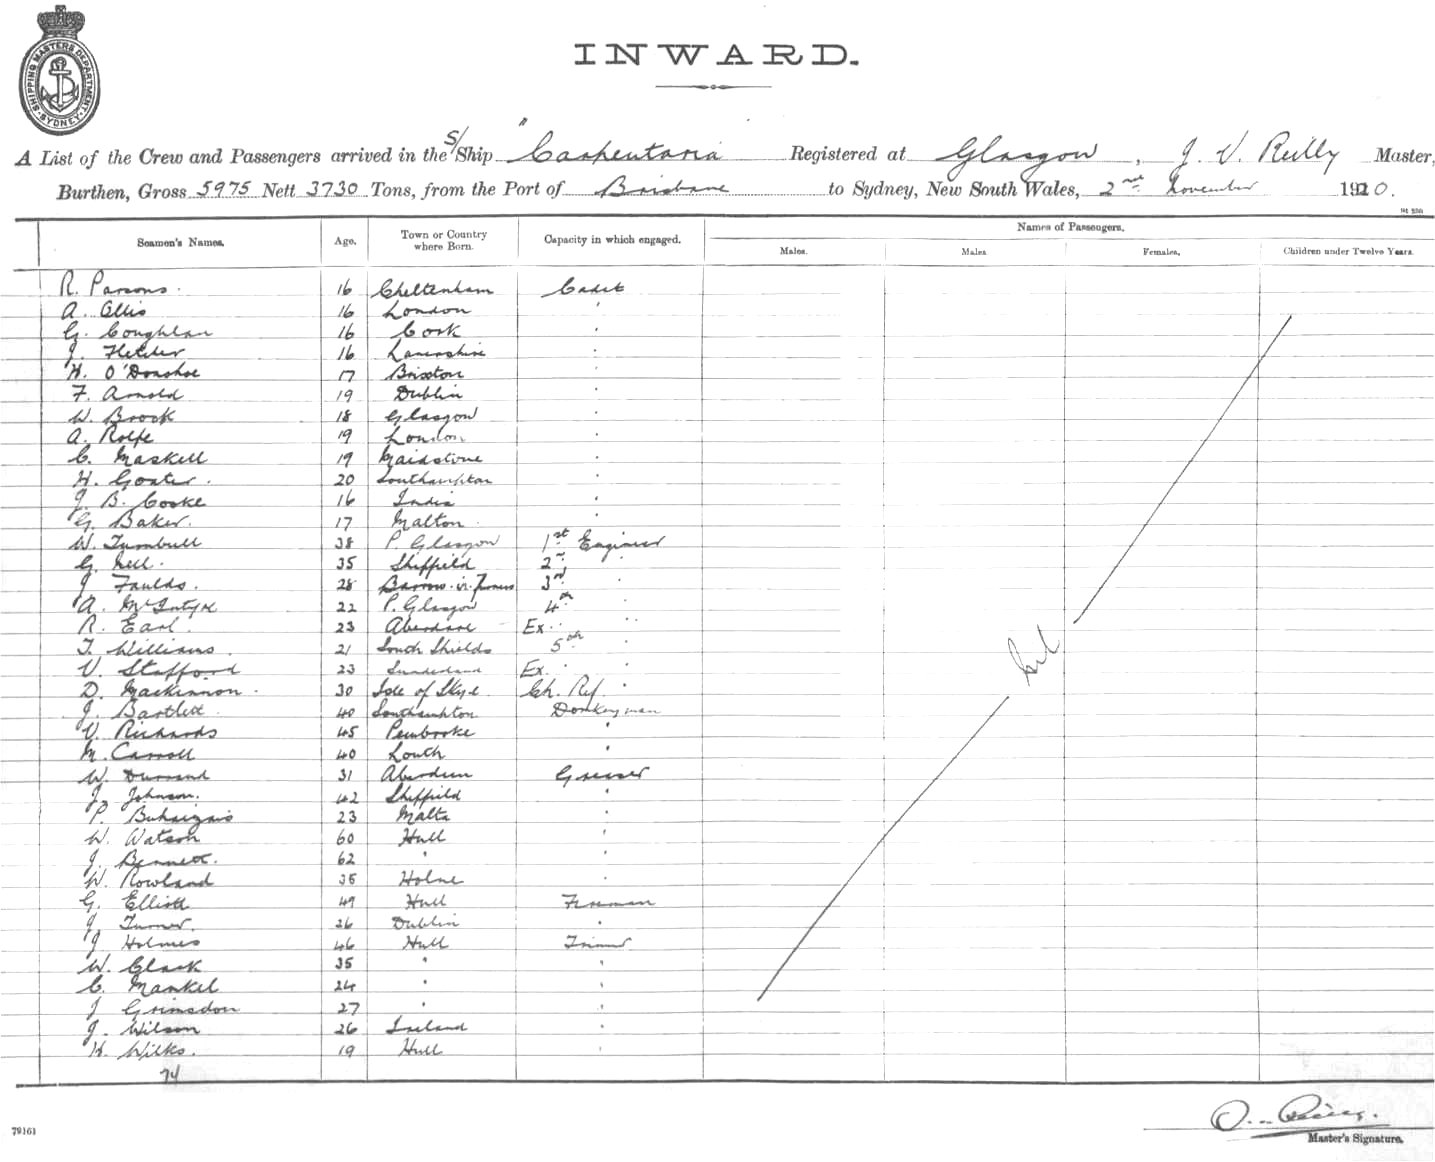 SHIPPING MASTERS DEPARTMENT. SYDNEY.
INWARD.
A List of the Crew and Passengers arrived in the S/Ship "Carpentaria Registered at Glasgow, J. V. Reilly Master,
Burthen, Gross 5975 Nett 3730 Tons, from the Port of Brisbane to Sydney, New South Wales, 2nd November 1920.
Seamen's Names. Age. Town or Country where Born. Capacity in which engaged. Names of Passengers.
Males. Males Females. Children under Twelve Years.
R. Parsons. 16 Cheltenham Cadet
A. Ellis 16 London "
G. Coughlan 16 Cork "
J. Fletcher 16 Lancashire "
H. O'Donohoe 17 Brixton "
F. Arnold 19 Dublin "
W. Brook 18 Glasgow "
A. Rolfe 19 London "
C. Maskell 19 Maidstone "
H. Goater. 20 Southampton "
J. B. Cooke 16 India "
G. Baker. 17 Malton "
W. Turnbull 38 P. Glasgow 1st Engineer
G. 35 Sheffield 2nd "
J. Faulds. 28 Barrow-in-Furness 3rd "
A. McIntyre 22 P. Glasgow 4th "
R. Earl. 23 Ex. " "
T. Williams. 21 South Shields 5th "
V. Stafford 23 Sunderland Ex. "
D. Mackinnon. 30 Isle of Skye Ch. Ref. "
J. Bartlett 40 Southampton Donkeyman
V. Richards 45 Pembroke "
M. Carroll 40 Louth "
W. Durrand 31 Aberdeen Greaser
J. Johnson. 42 Sheffield "
P. 23 Malta "
W. Watson 60 Hull "
J. Bennett. 62 " "
W. Rowland 35 Holme "
G. Elliott 49 Hull Fireman
J. Turner. 26 Dublin "
J. Holmes 46 Hull Trimmer
W. Clark 35 " "
C. Mankel 24 " "
J Grimsdon 27 " "
J. Wilson 26 Ireland "
H. Wilks. 19 Hull "
74
Nil
Master's Signature.
79161